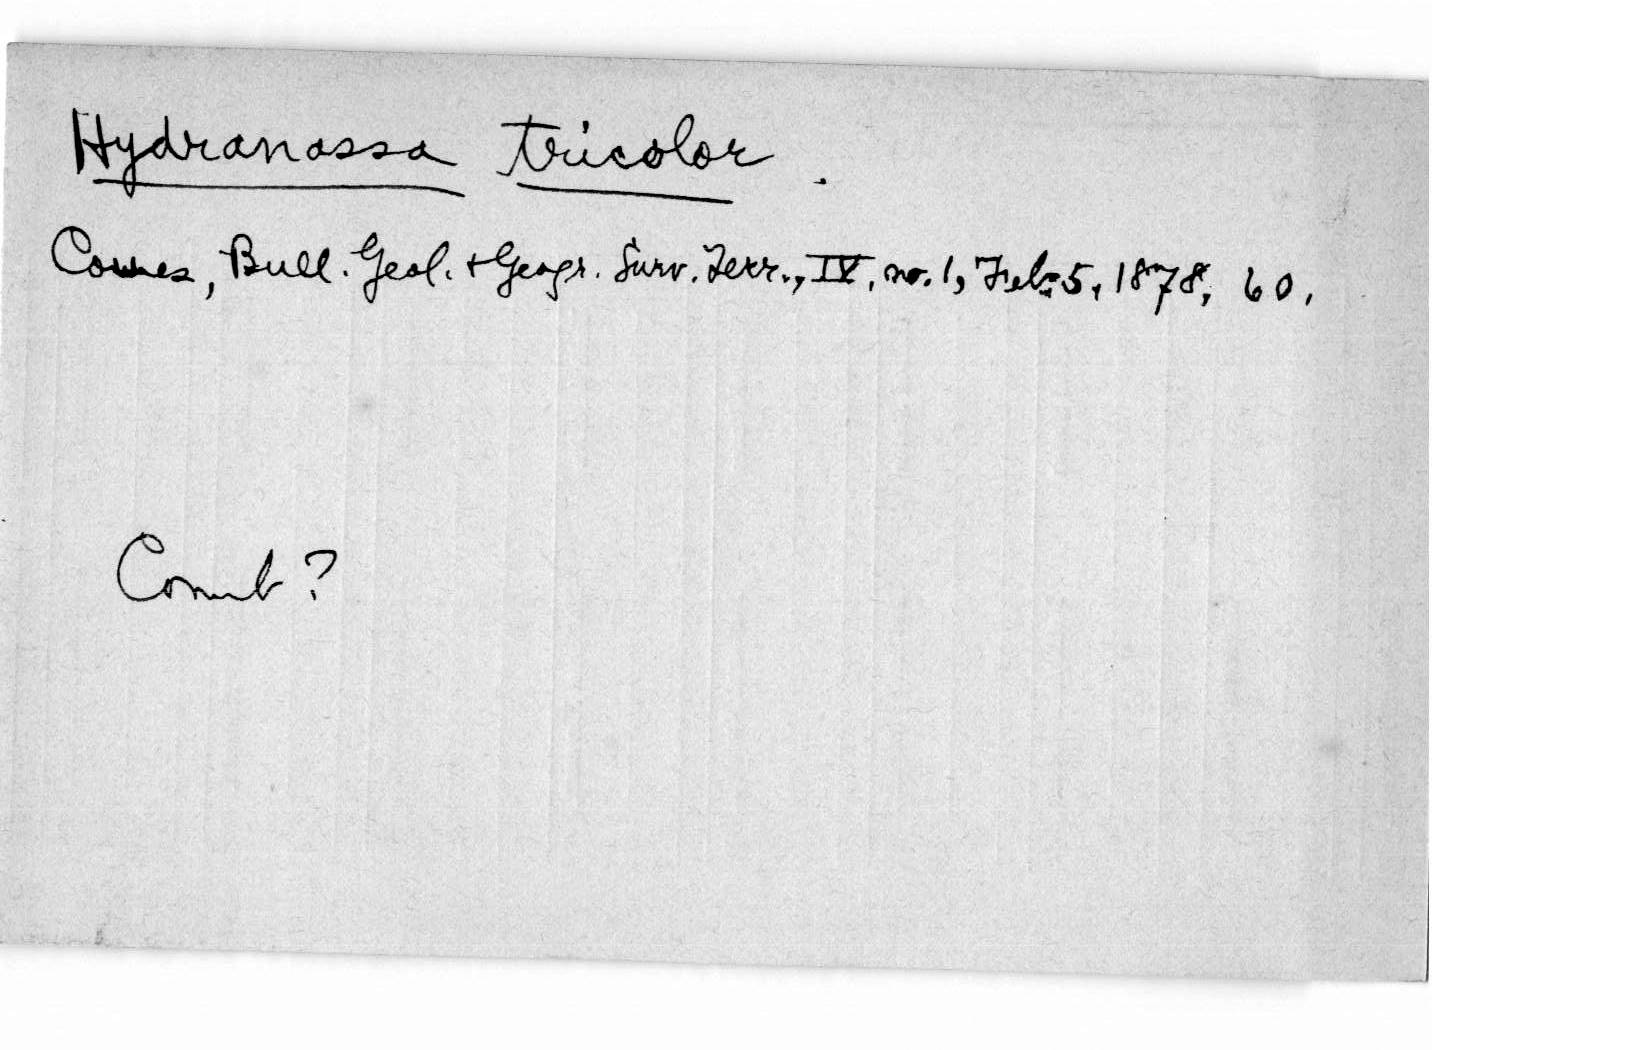 Hydranassa tricolor.
Coues, Bull. Geol. + Geogr. Surv. Terr., IV, no. 1, Feb. 5, 1878, 60.
Comb?